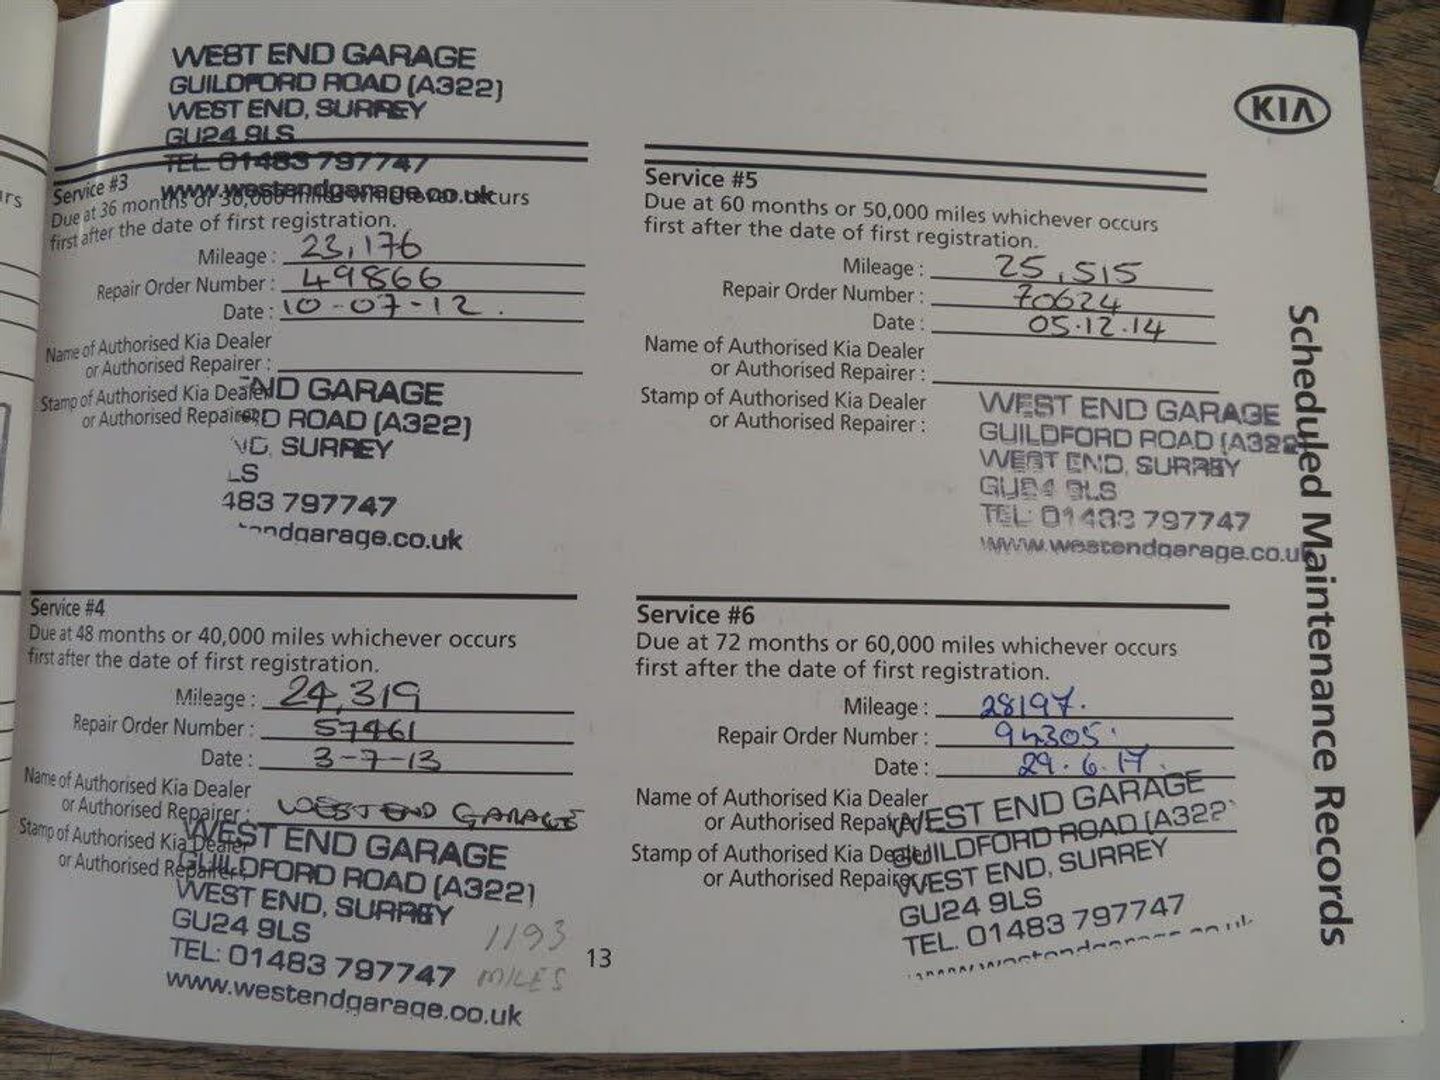 WEST END GARAGE
GUILDFORD ROAD (A322)
WEST END, SURREY
GU24 9LS
TEL 01483 797747
www.westendgarage.co.uk
Service #3
Due at 36 months or 30,000 miles whichever occurs
first after the date of first registration.
Mileage : 23,176
Repair Order Number : 49866
Date : 10-07-12.
Name of Authorised Kia Dealer
or Authorised Repairer :
Stamp of Authorised Kia Dealer
or Authorised Repairer
END GARAGE
RD ROAD (A322)
ND, SURREY
LS
483 797747
endgarage.co.uk
Service #4
Due at 48 months or 40,000 miles whichever occurs
first after the date of first registration.
Mileage : 24,319
Repair Order Number : 57461
Date : 3-7-13
Name of Authorised Kia Dealer
or Authorised Repairer : WEST END GARAGE
Stamp of Authorised Kia Dealer
or Authorised Repairer :
WEST END GARAGE
GUILDFORD ROAD (A322)
WEST END, SURREY
GU24 9LS
TEL: 01483 797747
www.westendgarage.co.uk
1193
MILES
13
KIA
Service #5
Due at 60 months or 50,000 miles whichever occurs
first after the date of first registration.
Mileage : 25,515
Repair Order Number : 70624
Date : 05.12.14
Name of Authorised Kia Dealer
or Authorised Repairer :
Stamp of Authorised Kia Dealer
or Authorised Repairer :
WEST END GARAGE
GUILDFORD ROAD (A322
WEST END, SURREY
GU24 9LS
TEL: 01483 797747
www.westendgarage.co.uk
Service #6
Due at 72 months or 60,000 miles whichever occurs
first after the date of first registration.
Mileage : 28197.
Repair Order Number : 94305
Date : 29.6.17.
Name of Authorised Kia Dealer
or Authorised Repairer
Stamp of Authorised Kia Dealer
or Authorised Repairer
WEST END GARAGE
GUILDFORD ROAD (A322
WEST END, SURREY
GU24 9LS
TEL. 01483 797747
Scheduled Maintenance Records